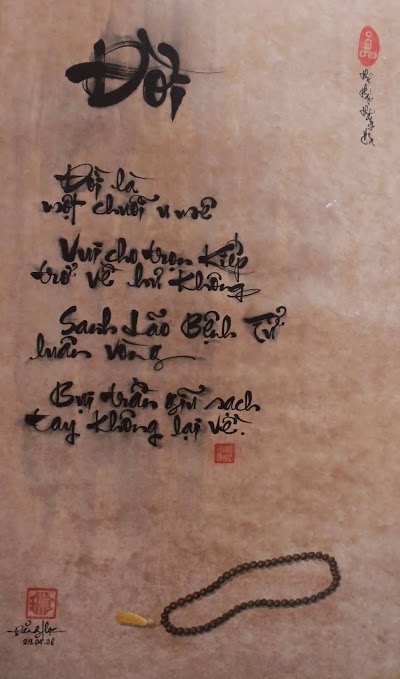 Đời
Đời là
một chuỗi u mê
Vui cho trọn Kiếp
trở về hư Không
Sanh Lão Bệnh Tử
luân vòng
Bụi trần giũ sạch
tay Không lại về.